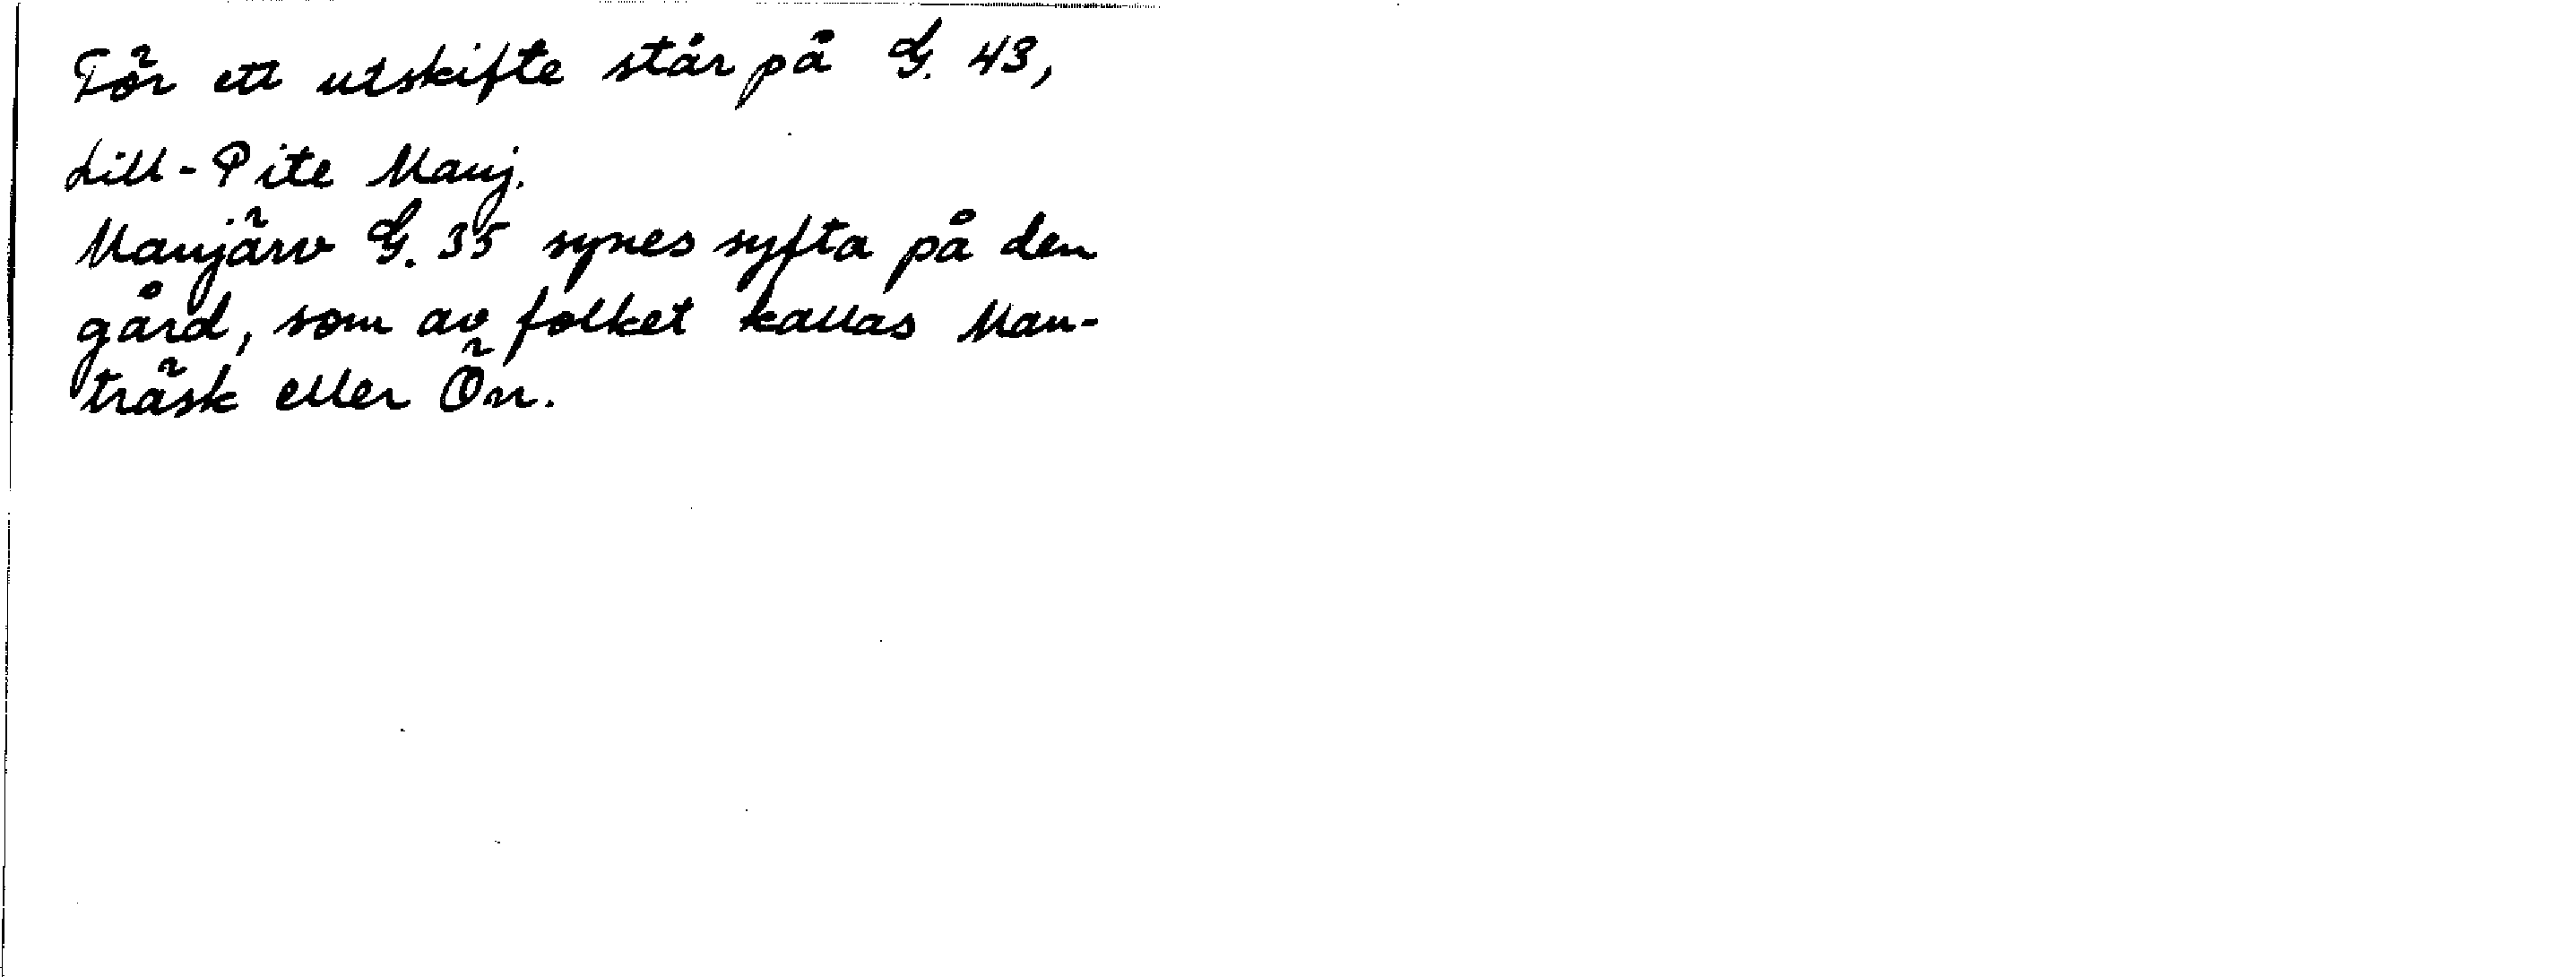 För ett utskifte står på G. 43,
Lill-Pite Manj.
Manjärv G. 35 synes syfta på den
gård, som av folket kallas Man-
träsk eller Ön.